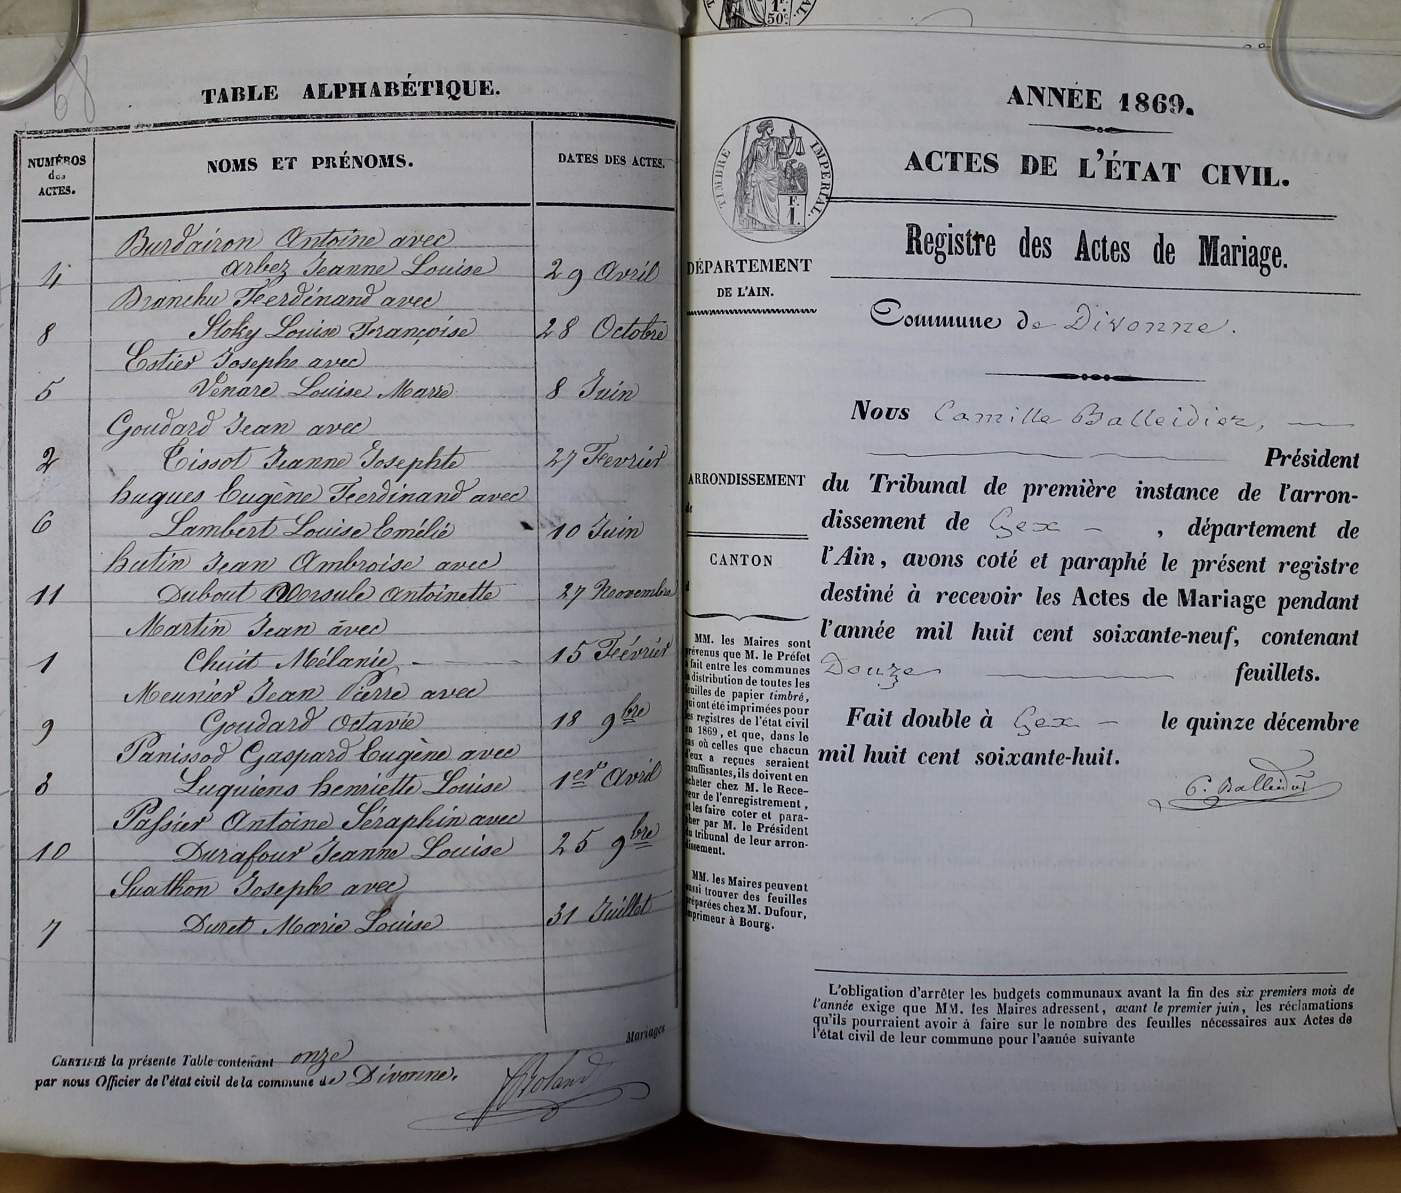 68
TABLE ALPHABÉTIQUE.
NUMÉROS
des
ACTES.
NOMS ET PRÉNOMS.
DATES DES ACTES.
Burdairon Antoine avec
4 Arbez Jeanne Louise 29 Avril
Branchu Ferdinand avec
8 Stoky Louise Françoise 28 Octobre
Estier Joseph avec
5 Venare Louise Marie 8 Juin
Goudard Jean avec
2 Tissot Jeanne Josephte 27 Fevrier
hugues Eugène Ferdinand avec
6 Lambert Louise Emélie 10 Juin
hutin Jean Ambroise avec
11 Dubout Ursule Antoinette 27 Novembre
Martin Jean avec
1 Chuit Mélanie 15 Février
Meunier Jean Pierre avec
9 Goudard Octavie 18 9bre
Panissod Gaspard Eugène avec
3 Luquiens henriette Louise 1er Avril
Passier Antoine Séraphin avec
10 Durafour Jeanne Louise 25 9bre
Suathon Joseph avec
7 Duret Marie Louise 31 Juillet
Mariages
CERTIFIÉ la présente Table contenant onze
par nous Officier de l'état civil de la commune de Divonne.
Roland
1F
50c
TIMBRE IMPÉRIAL.
F.
1.
ANNÉE 1869.
ACTES DE L'ÉTAT CIVIL.
Registre des Actes de Mariage.
DÉPARTEMENT
DE L'AIN.
Commune de Divonne.
ARRONDISSEMENT
de
CANTON
d
MM. les Maires sont
prévenus que M. le Préfet
a fait entre les communes
la distribution de toutes les
feuilles de papier timbré,
qui ont été imprimées pour
les registres de l'état civil
en 1869, et que, dans le
cas où celles que chacun
d'eux a reçues seraient
insuffisantes, ils doivent en
acheter chez M. le Rece-
veur de l'enregistrement,
et les faire coter et para-
pher par M. le Président
du tribunal de leur arron-
dissement.
MM. les Maires peuvent
aussi trouver des feuilles
préparées chez M. Dufour,
imprimeur à Bourg.
Nous Camille Balleidier,
Président
du Tribunal de première instance de l'arron-
dissement de Gex, département de
l'Ain, avons coté et paraphé le présent registre
destiné à recevoir les Actes de Mariage pendant
l'année mil huit cent soixante-neuf, contenant
Douze feuillets.
Fait double à Gex le quinze décembre
mil huit cent soixante-huit.
C. Balleidier
L'obligation d'arrêter les budgets communaux avant la fin des six premiers mois de
l'année exige que MM. les Maires adressent, avant le premier juin, les réclamations
qu'ils pourraient avoir à faire sur le nombre des feuilles nécessaires aux Actes de
l'état civil de leur commune pour l'année suivante